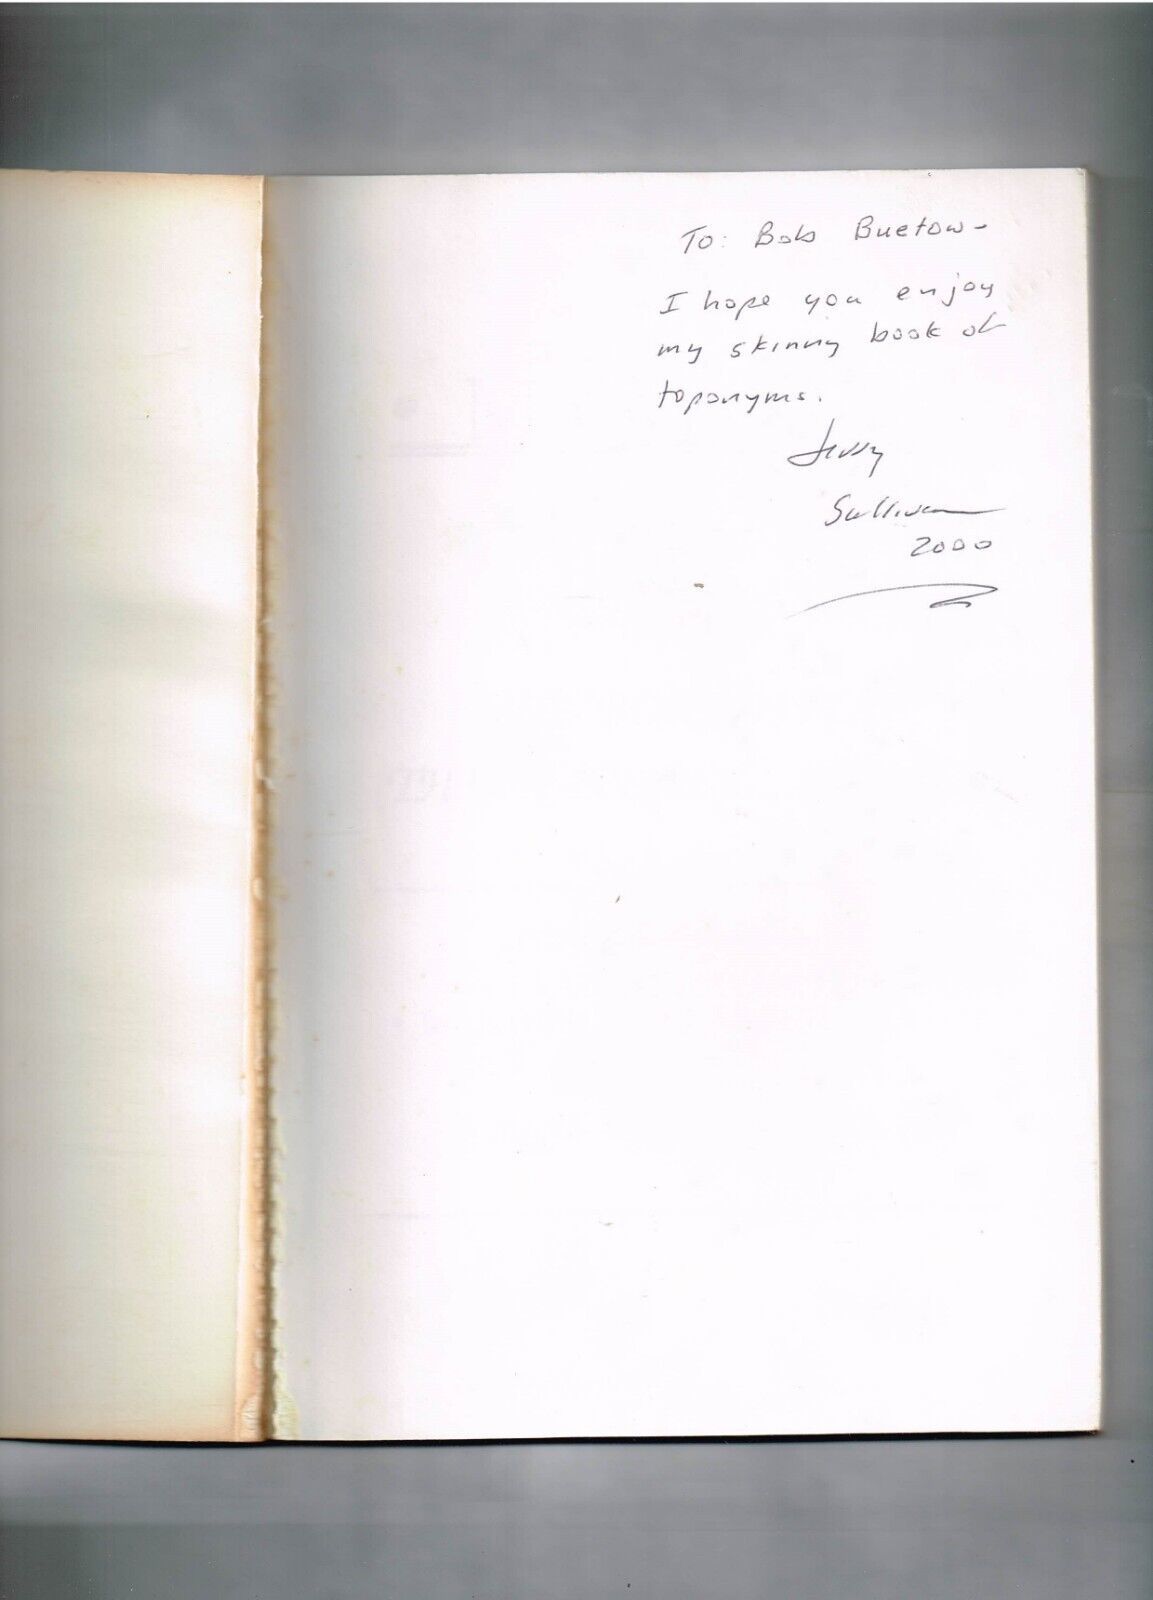 To: Bob Buetow-
I hope you enjoy
my skinny book of
toponyms.
Jerry
Sullivan
2000